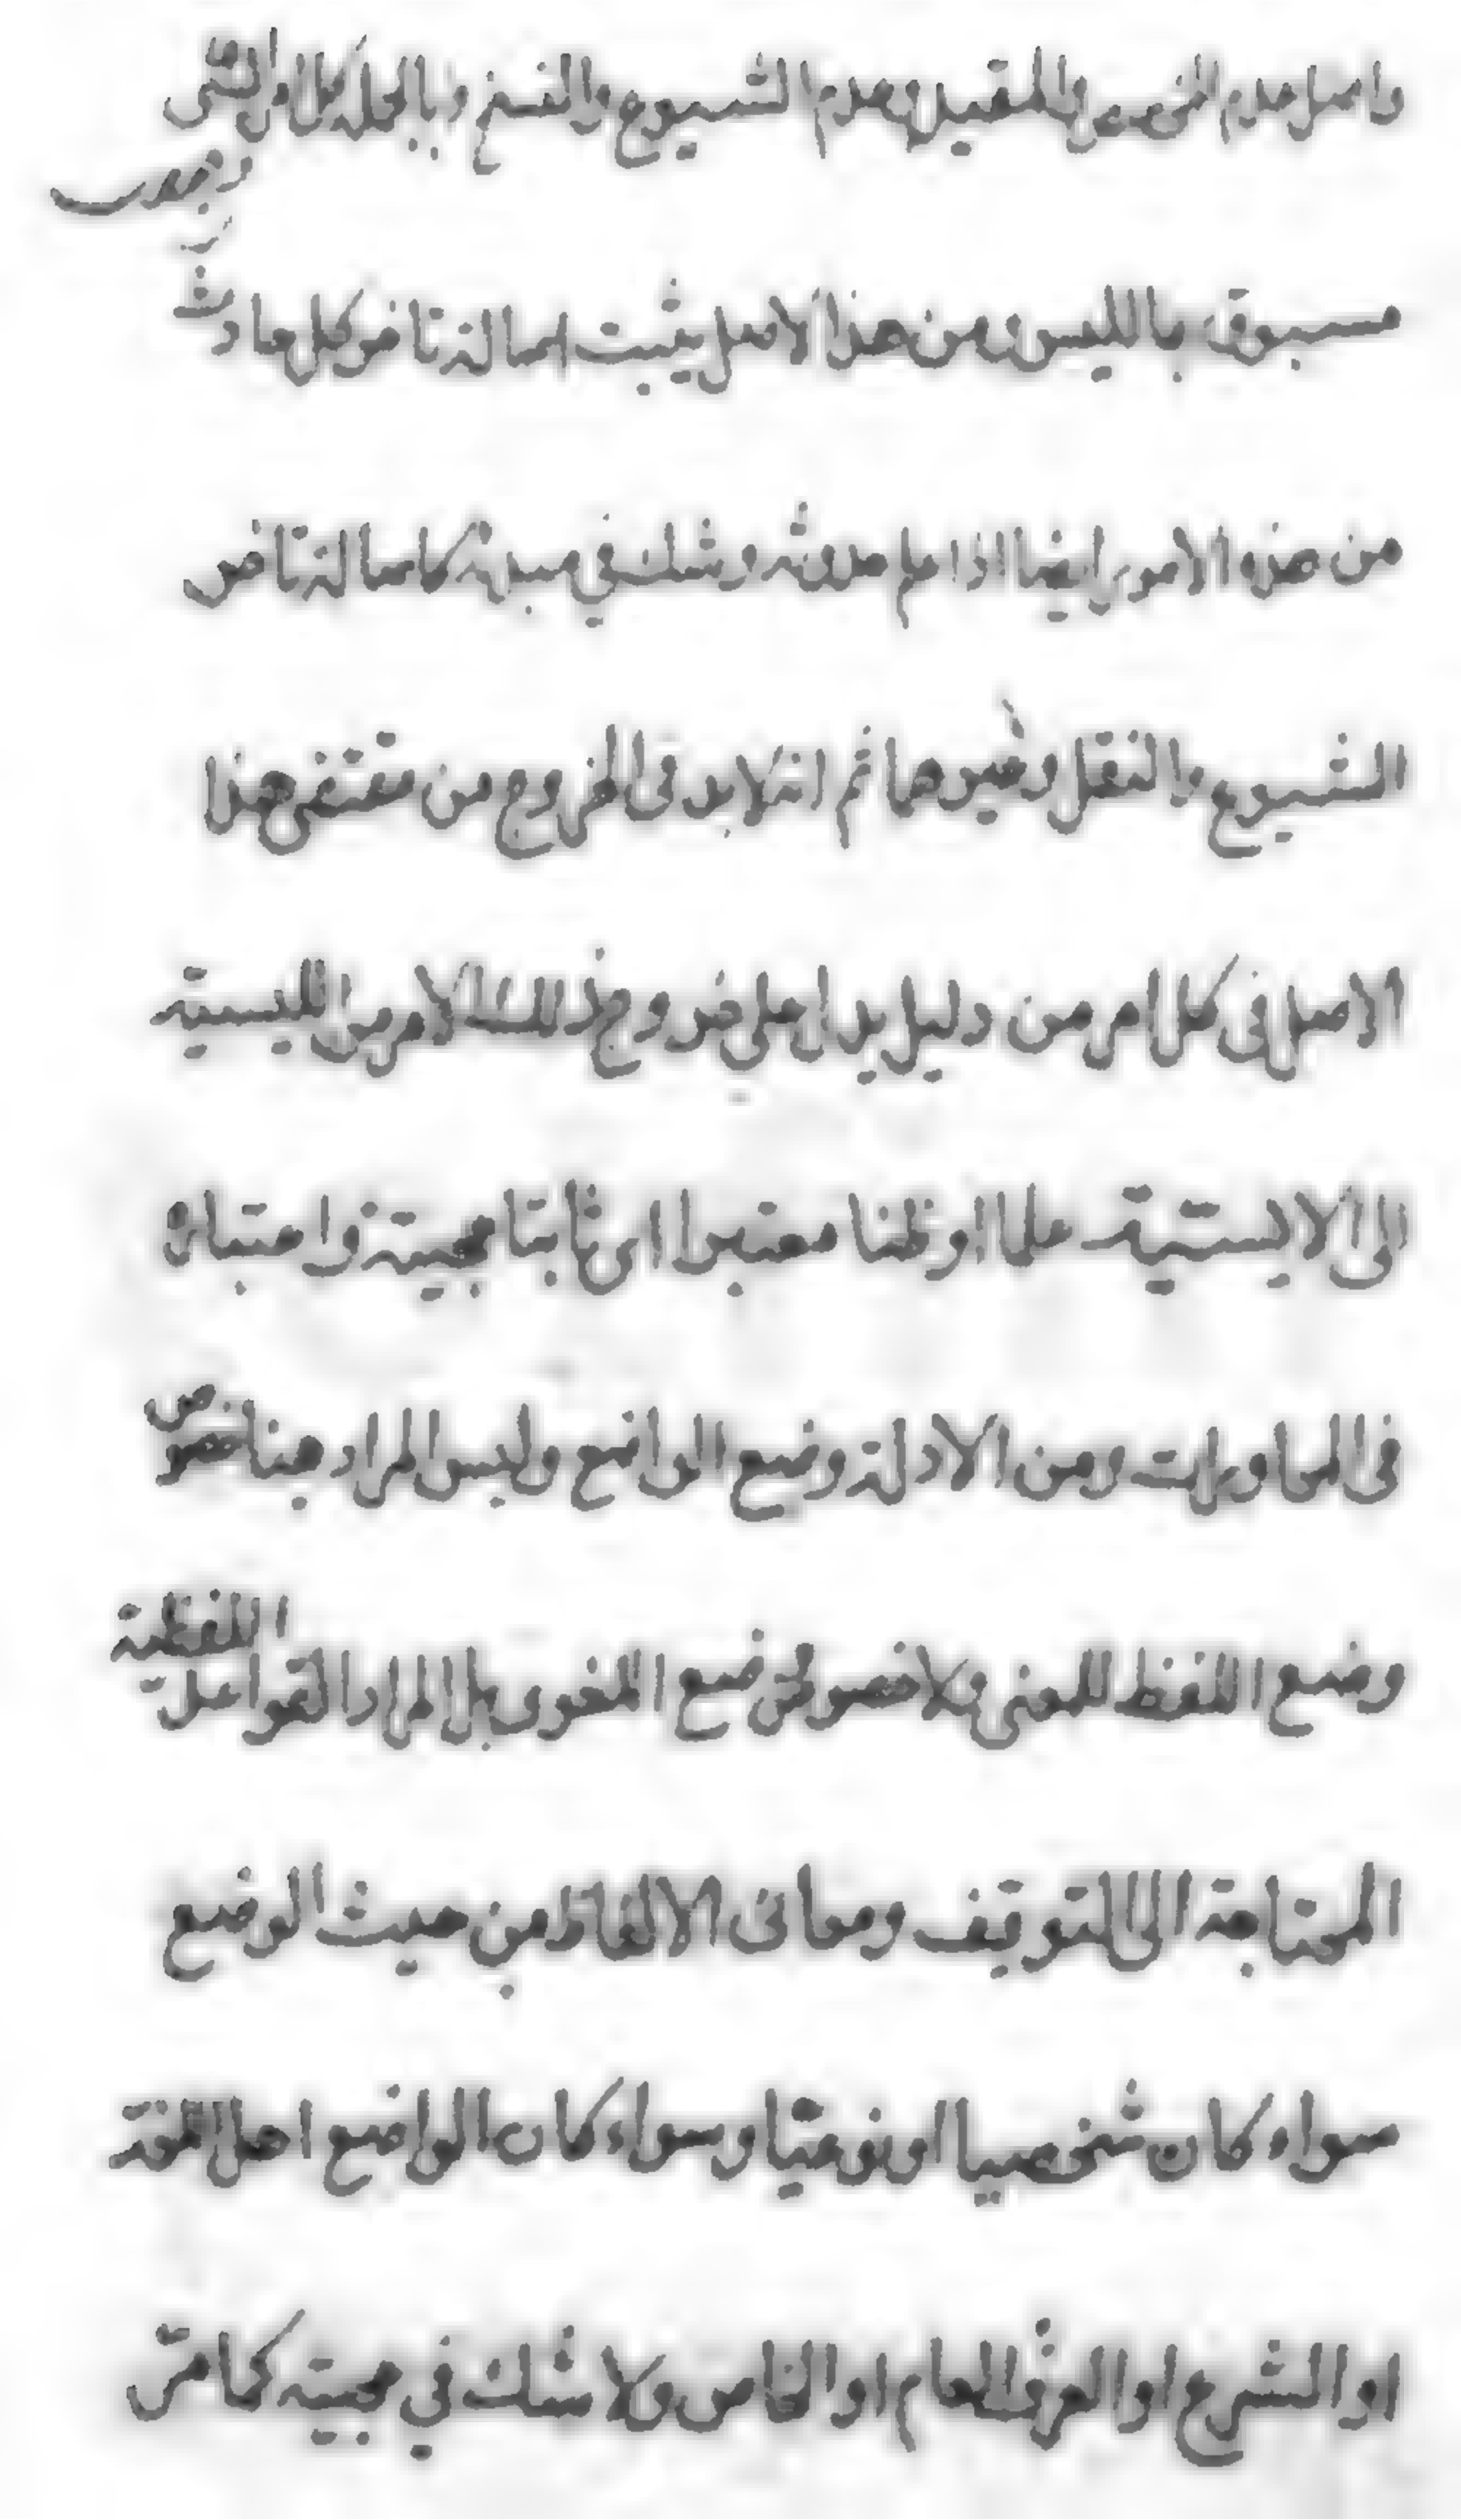 واصل عدم التخصيص والمقيد وعدم الشيوع والنسخ وبالجملة كل امر لشئ
وجوده
مسبوق بالليس ومن هذا الاصل يثبت اصالة تاخر كل حادث
من هذه الامور ايضا اذا علم حدوثه وشك في مبدئه كاصالة تاخر
الشيوع والنقل وغيرها ثم انه لابد في الخروج من مقتضى هذا
الاصل في كل امر من دليل يدل على خروج ذلك الامر من الليسية
الى الايسية علما او ظنا معتبرا اى ثابتا حجيته واعتباره
في المحاورات ومن الادلة وضع الواضع وليس المراد هنا خصوص
وضع اللفظ للمعنى ولا خصوص وضع اللغوى بل المراد القواعد اللفظية
المحتاجة الى التوقيف ومعانى الالفاظ من حيث الوضع
سواء كان شخصيا او نوعيا وسواء كان الواضع اهل اللغة
او الشرع او العرف العام او الخاص ولا شك في حجيته كما مر